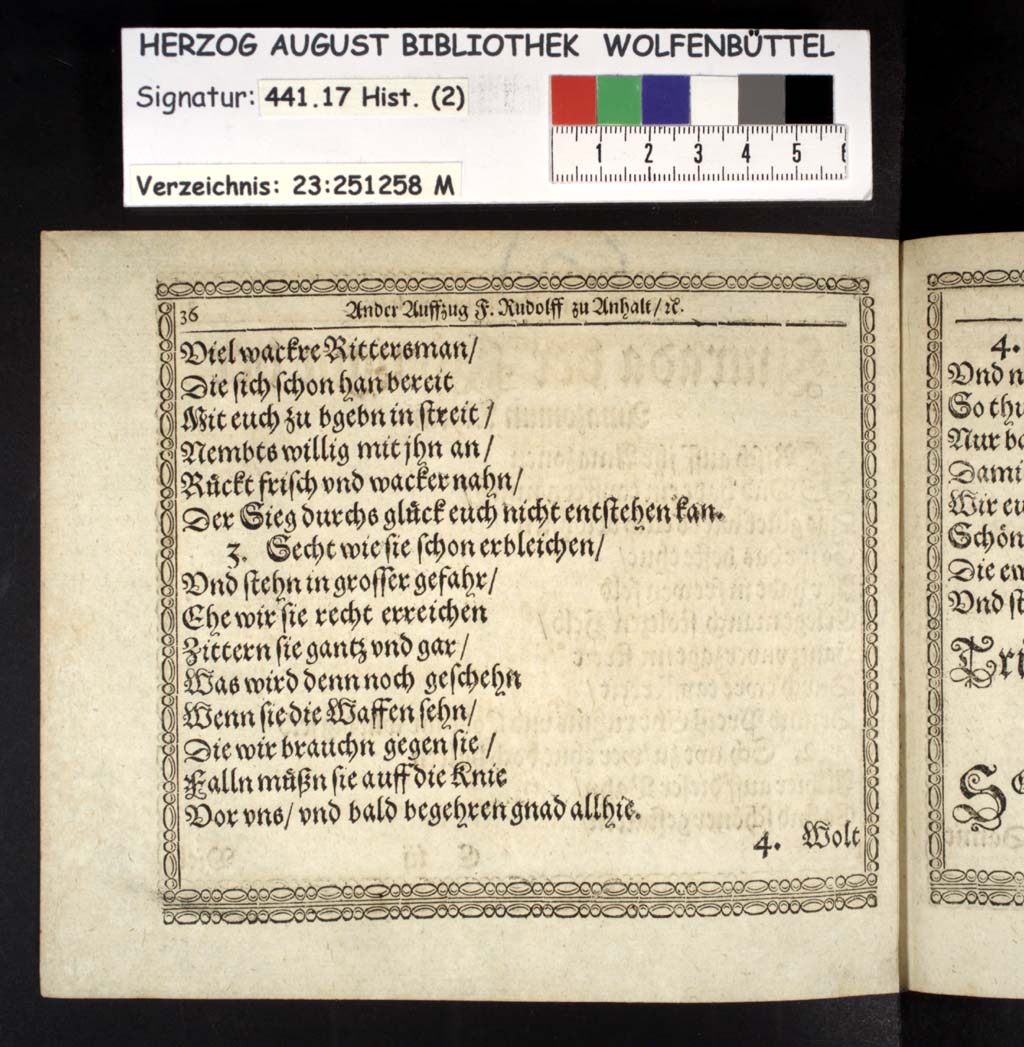 HERZOG AUGUST BIBLIOTHEK WOLFENBÜTTEL
Signatur: 441.17 Hist. (2)
Verzeichnis: 23:251258 M
1 2 3 4 5 6
36 Ander Auffzug F. Rudolff zu Anhalt/ ꝛc.
Viel wackre Rittersman/
Die sich schon han bereit
Mit euch zu bgebn in streit/
Nembts willig mit jhn an/
Rückt frisch vnd wacker nahn/
Der Sieg durchs glück euch nicht entstehen kan.
3. Secht wie sie schon erbleichen/
Vnd stehn in grosser gefahr/
Ehe wir sie recht erreichen
Zittern sie gantz vnd gar/
Was wird denn noch geschehn
Wenn sie die Waffen sehn/
Die wir brauchn gegen sie/
Falln müßn sie auff die Knie
Vor vns/ vnd bald begehren gnad allhie.
4. Wolt
4.
Vnd n
So thu
Nur ba
Dami
Wir eu
Schön
Die ew
Vnd st
Tri